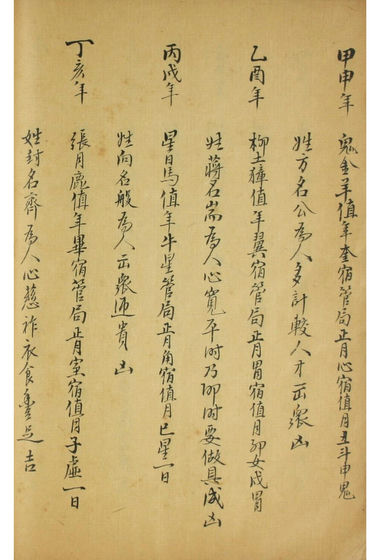 甲申年 鬼金羊值年奎宿管局正月心宿值月丑斗申鬼
姓方名公為人多計較人才出眾凶
乙酉年 柳土獐值年翼宿管局正月胃宿值月卯女戌胃
姓蔣名耑為人心寬平时乃卯时要做具成凶
丙戌年 星日馬值年牛星管局正月角宿值月巳星一日
姓向名般為人出眾迊貴凶
丁亥年 張月鹿值年畢宿管局正月室宿值月子虛一日
姓封名齊為人心慈祚衣食豊足吉